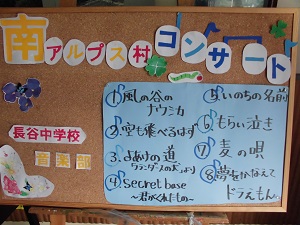 南アルプス村コンサート
長谷中学校
音楽部
①風の谷の
ナウシカ
②空も飛べるはず
3.よあけの道
フランダースの犬より
④secret base
~君がくれたもの~
5.いのちの名前
⑥もらい泣き
⑦麦の唄
⑧夢をかなえて
ドラえもん